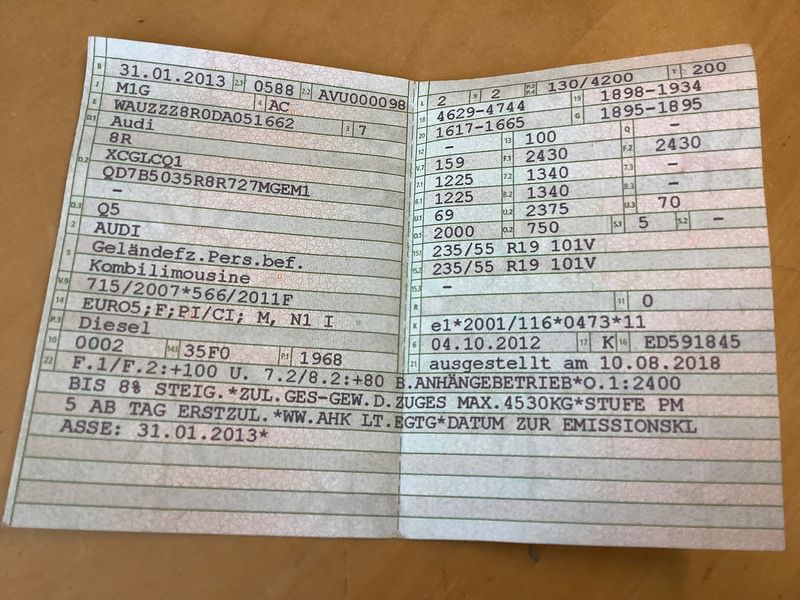 B 31.01.2013 2.1 0588 2.2 AVU000098
J M1G 4 AC
E WAUZZZ8R0DA051662 3 7
D.1 Audi
8R
D.2 XCGLCQ1
QD7B5035R8R727MGEM1
–
D.3 Q5
2 AUDI
5 Geländefz.Pers.bef.
Kombilimousine
V.9 715/2007*566/2011F
14 EURO5;F;PI/CI; M, N1 I
P.3 Diesel
10 0002 14.1 35F0 P.1 1968
L 2 9 2 P.2 P.4 130/4200 T 200
18 4629-4744 19 1898-1934
20 1617-1665 G 1895-1895
12 – 13 100 Q –
V.7 159 F.1 2430 F.2 2430
7.1 1225 7.2 1340 7.3 –
8.1 1225 8.2 1340 8.3 –
U.1 69 U.2 2375 U.3 70
O.1 2000 O.2 750 S.1 5 S.2 –
15.1 235/55 R19 101V
15.2 235/55 R19 101V
15.3 –
R 11 0
K e1*2001/116*0473*11
6 04.10.2012 17 K 16 ED591845
21 ausgestellt am 10.08.2018
22 F.1/F.2:+100 U. 7.2/8.2:+80 B.ANHÄNGEBETRIEB*O.1:2400
BIS 8% STEIG.*ZUL.GES-GEW.D.ZUGES MAX.4530KG*STUFE PM
5 AB TAG ERSTZUL.*WW.AHK LT.EGTG*DATUM ZUR EMISSIONSKL
ASSE: 31.01.2013*